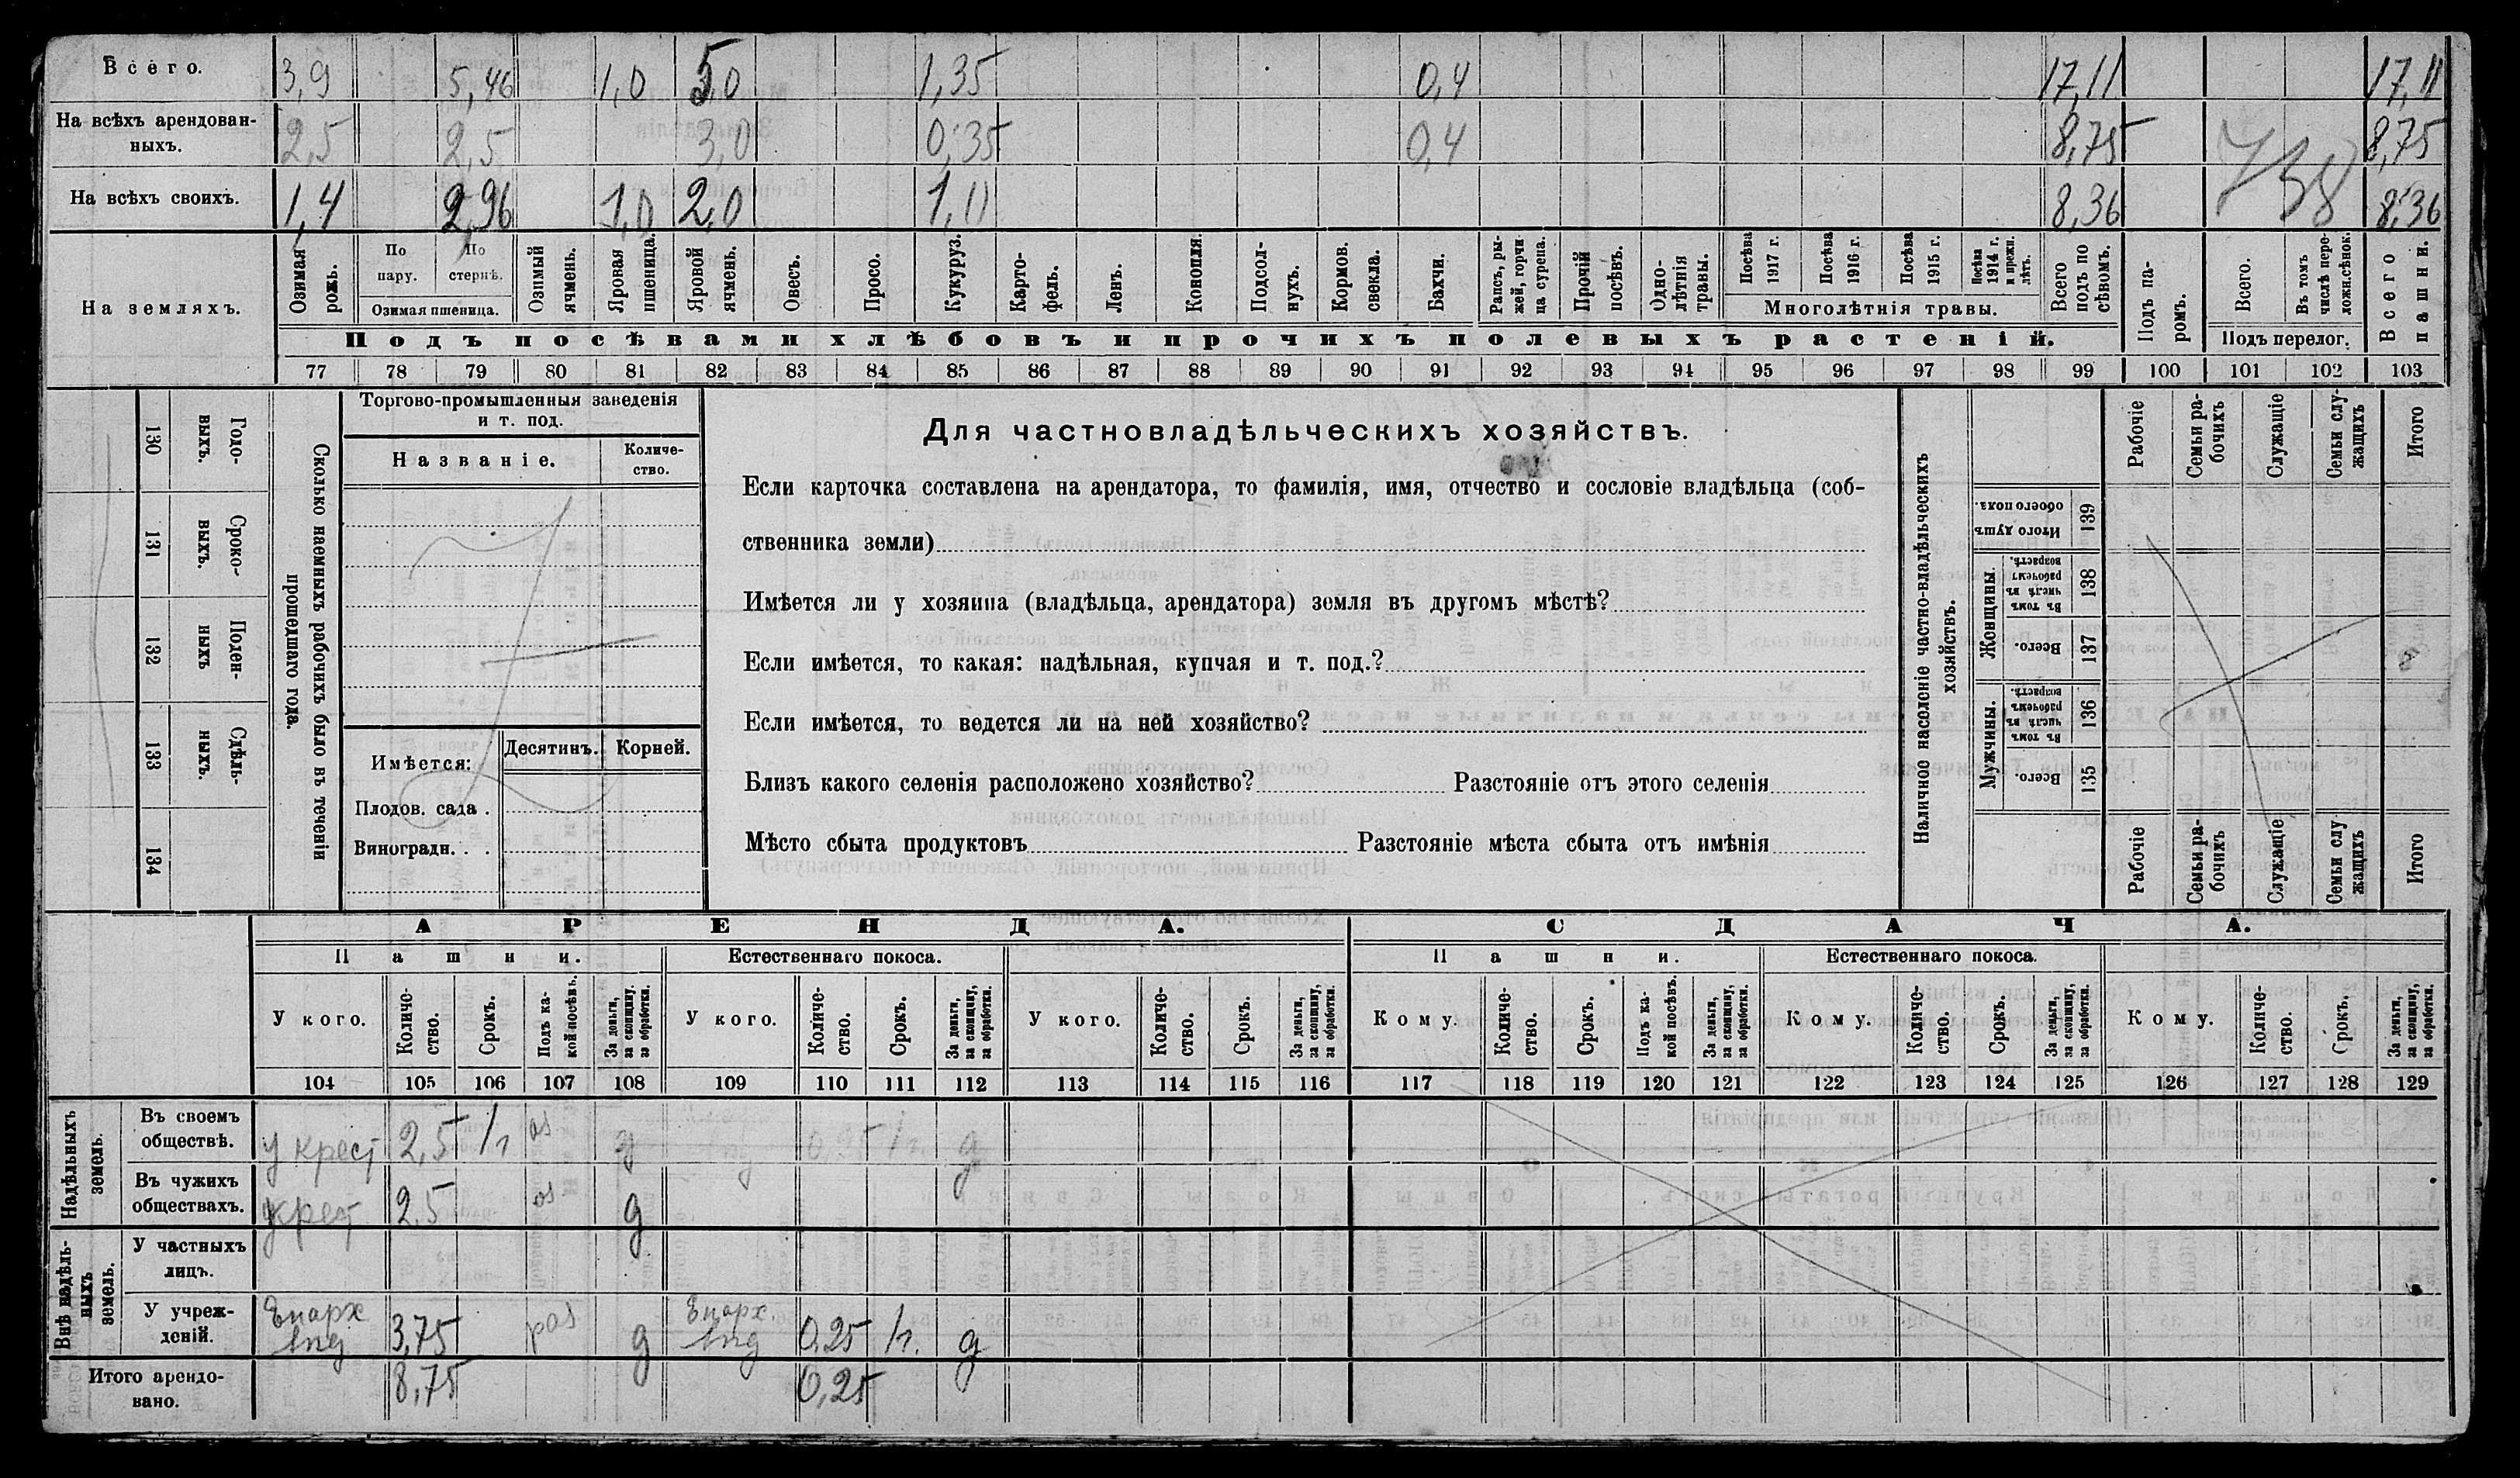 Всего. 3,9 5,46 1,0 5,0 1,35 0,4 17,11 17,11
На всѣхъ арендован-
ныхъ. 2,5 2,5 3,0 0,35 0,4 8,75 8,75
На всѣхъ своихъ. 1,4 2,96 1,0 2,0 1,0 8,36 8,36
На земляхъ.
Озимая рожь.
По пару.
По стернѣ.
Озимая пшеница.
Озимый ячмень.
Яровая пшеница.
Яровой ячмень.
Овесъ.
Просо.
Кукуруз.
Карто-
фель.
Ленъ.
Конопля.
Подсол-
нухъ.
Кормов.
свекла.
Бахчи.
Рапсъ, ры-
жей, горчи
ца сурепа.
Прочій
посѣвъ.
Одно-
лѣтнія
травы.
Посѣва
1917 г.
Посѣва
1916 г.
Посѣва
1915 г.
Посѣва
1914 г.
и прежн.
лѣтъ.
Многолѣтнія травы.
Всего
подъ по
сѣвомъ.
Подъ па-
ромъ.
Всего.
Въ томъ
числѣ пере-
ложн.сѣнок.
Подъ перелог.
Всего
пашни.
Подъ посѣвами хлѣбовъ и прочихъ полевыхъ растеній.
77 78 79 80 81 82 83 84 85 86 87 88 89 90 91 92 93 94 95 96 97 98 99 100 101 102 103
130 Годо-
выхъ.
131 Сроко-
выхъ.
132 Поден-
ныхъ
133 Сдѣль-
ныхъ.
134
Сколько наемныхъ рабочихъ было въ теченіи
прошедшаго года.
Торгово-промышленныя заведенія
и т. под.
Названіе.
Количе-
ство.
Имѣется:
Десятинъ.
Корней.
Плодов. сада .
Виноградн. . .
Для частновладѣльческихъ хозяйствъ.
Если карточка составлена на арендатора, то фамилія, имя, отчество и сословіе владѣльца (соб-
ственника земли)
Имѣется ли у хозяина (владѣльца, арендатора) земля въ другомъ мѣстѣ?
Если имѣется, то какая: надѣльная, купчая и т. под.?
Если имѣется, то ведется ли на ней хозяйство?
Близъ какого селенія расположено хозяйство? Разстояніе отъ этого селенія
Мѣсто сбыта продуктовъ Разстояніе мѣста сбыта отъ имѣнія
Наличное населеніе частно-владѣльческихъ
хозяйствъ.
Рабочіе
Семьи ра-
бочихъ
Служащіе
Семьи слу-
жащихъ
Итого
Итого душъ
обоего пола.
139
Женщины.
Въ томъ
числѣ въ
рабочемъ
возрастѣ.
138
Всего.
137
Мужчины.
Въ томъ
числѣ въ
рабочемъ
возрастѣ.
136
Всего.
135
Рабочіе
Семьи ра-
бочихъ
Служащіе
Семьи слу
жащихъ
Итого
АРЕНДА. СДАЧА.
Пашни. Естественнаго покоса. Пашни. Естественнаго покоса.
У кого.
Количе-
ство.
Срокъ.
Подъ ка-
кой посѣвъ.
За деньги,
за скопщину.
за обработки.
У кого.
Количе-
ство.
Срокъ.
За деньги,
за скопщину,
за обработки.
У кого.
Количе-
ство.
Срокъ.
За деньги,
за скопщину,
за обработки.
Кому.
Количе-
ство.
Срокъ.
Подъ ка-
кой посѣвъ.
За деньги,
за скопщину,
за обработки.
Кому.
Количе-
ство.
Срокъ.
За деньги,
за скопщину,
за обработки.
Кому.
Количе-
ство.
Срокъ.
За деньги,
за скопщину,
за обработки.
104 105 106 107 108 109 110 111 112 113 114 115 116 117 118 119 120 121 122 123 124 125 126 127 128 129
Надѣльныхъ
земель.
Въ своемъ
обществѣ. у крест 2,5 д
Въ чужихъ
обществахъ. крест 2,5 д
Внѣ надѣль-
ныхъ
земель.
У частныхъ
лицъ.
У учреж-
деній. Епарх 3,75 д Епарх. 0,25 д
Итого арендо-
вано. 8,75 0,25